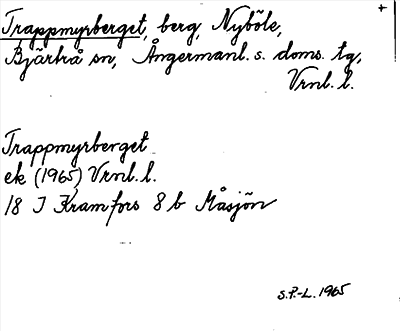 +
Trappmyrberget, berg, Nyböle,
Bjärtrå sn, Ångermanl. s. doms. tg,
Vrnl. l.
Trappmyrberget
ek (1965) Vrnl. l.
18 I Kramfors 8 b Måsjön
S.P.-L. 1965